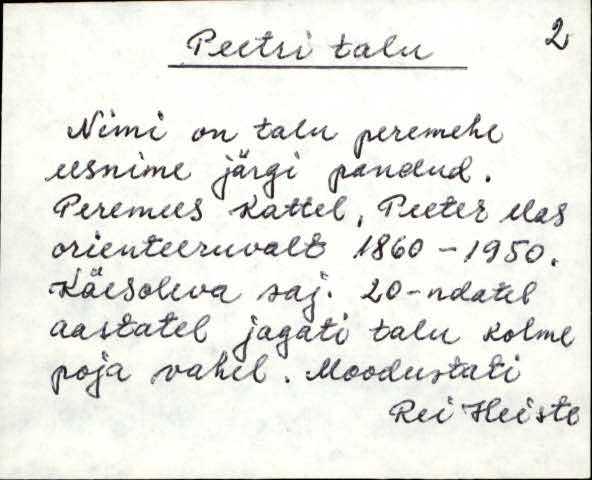 2
Peetri talu
Nimi on talu peremehe
eesnime järgi pandud.
Peremees Kattel, Peeter elas
orienteeruvalt 1860 - 1950.
Käesoleva saj. 20-ndatel
aastatel jagati talu kolme
poja vahel. Moodustati
Rei Heiste